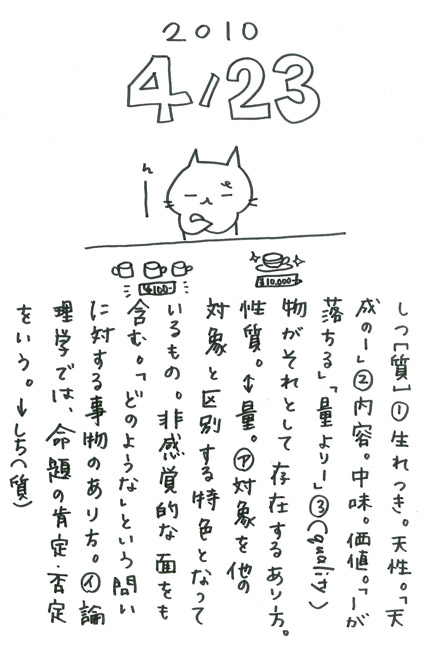 2010
4/23
ん―
¥100-
¥10,000-
しつ【質】①生れつき。天性。「天
成の―」②内容。中味。価値。「―が
落ちる」「量より―」③(quality)
物がそれとして存在するあり方。
性質。↔量。㋐対象を他の
対象と区別する特色となって
いるもの。非感覚的な面をも
含む。「どのような」という問い
に対する事物のあり方。㋑論
理学では、命題の肯定・否定
をいう。→しち(質)